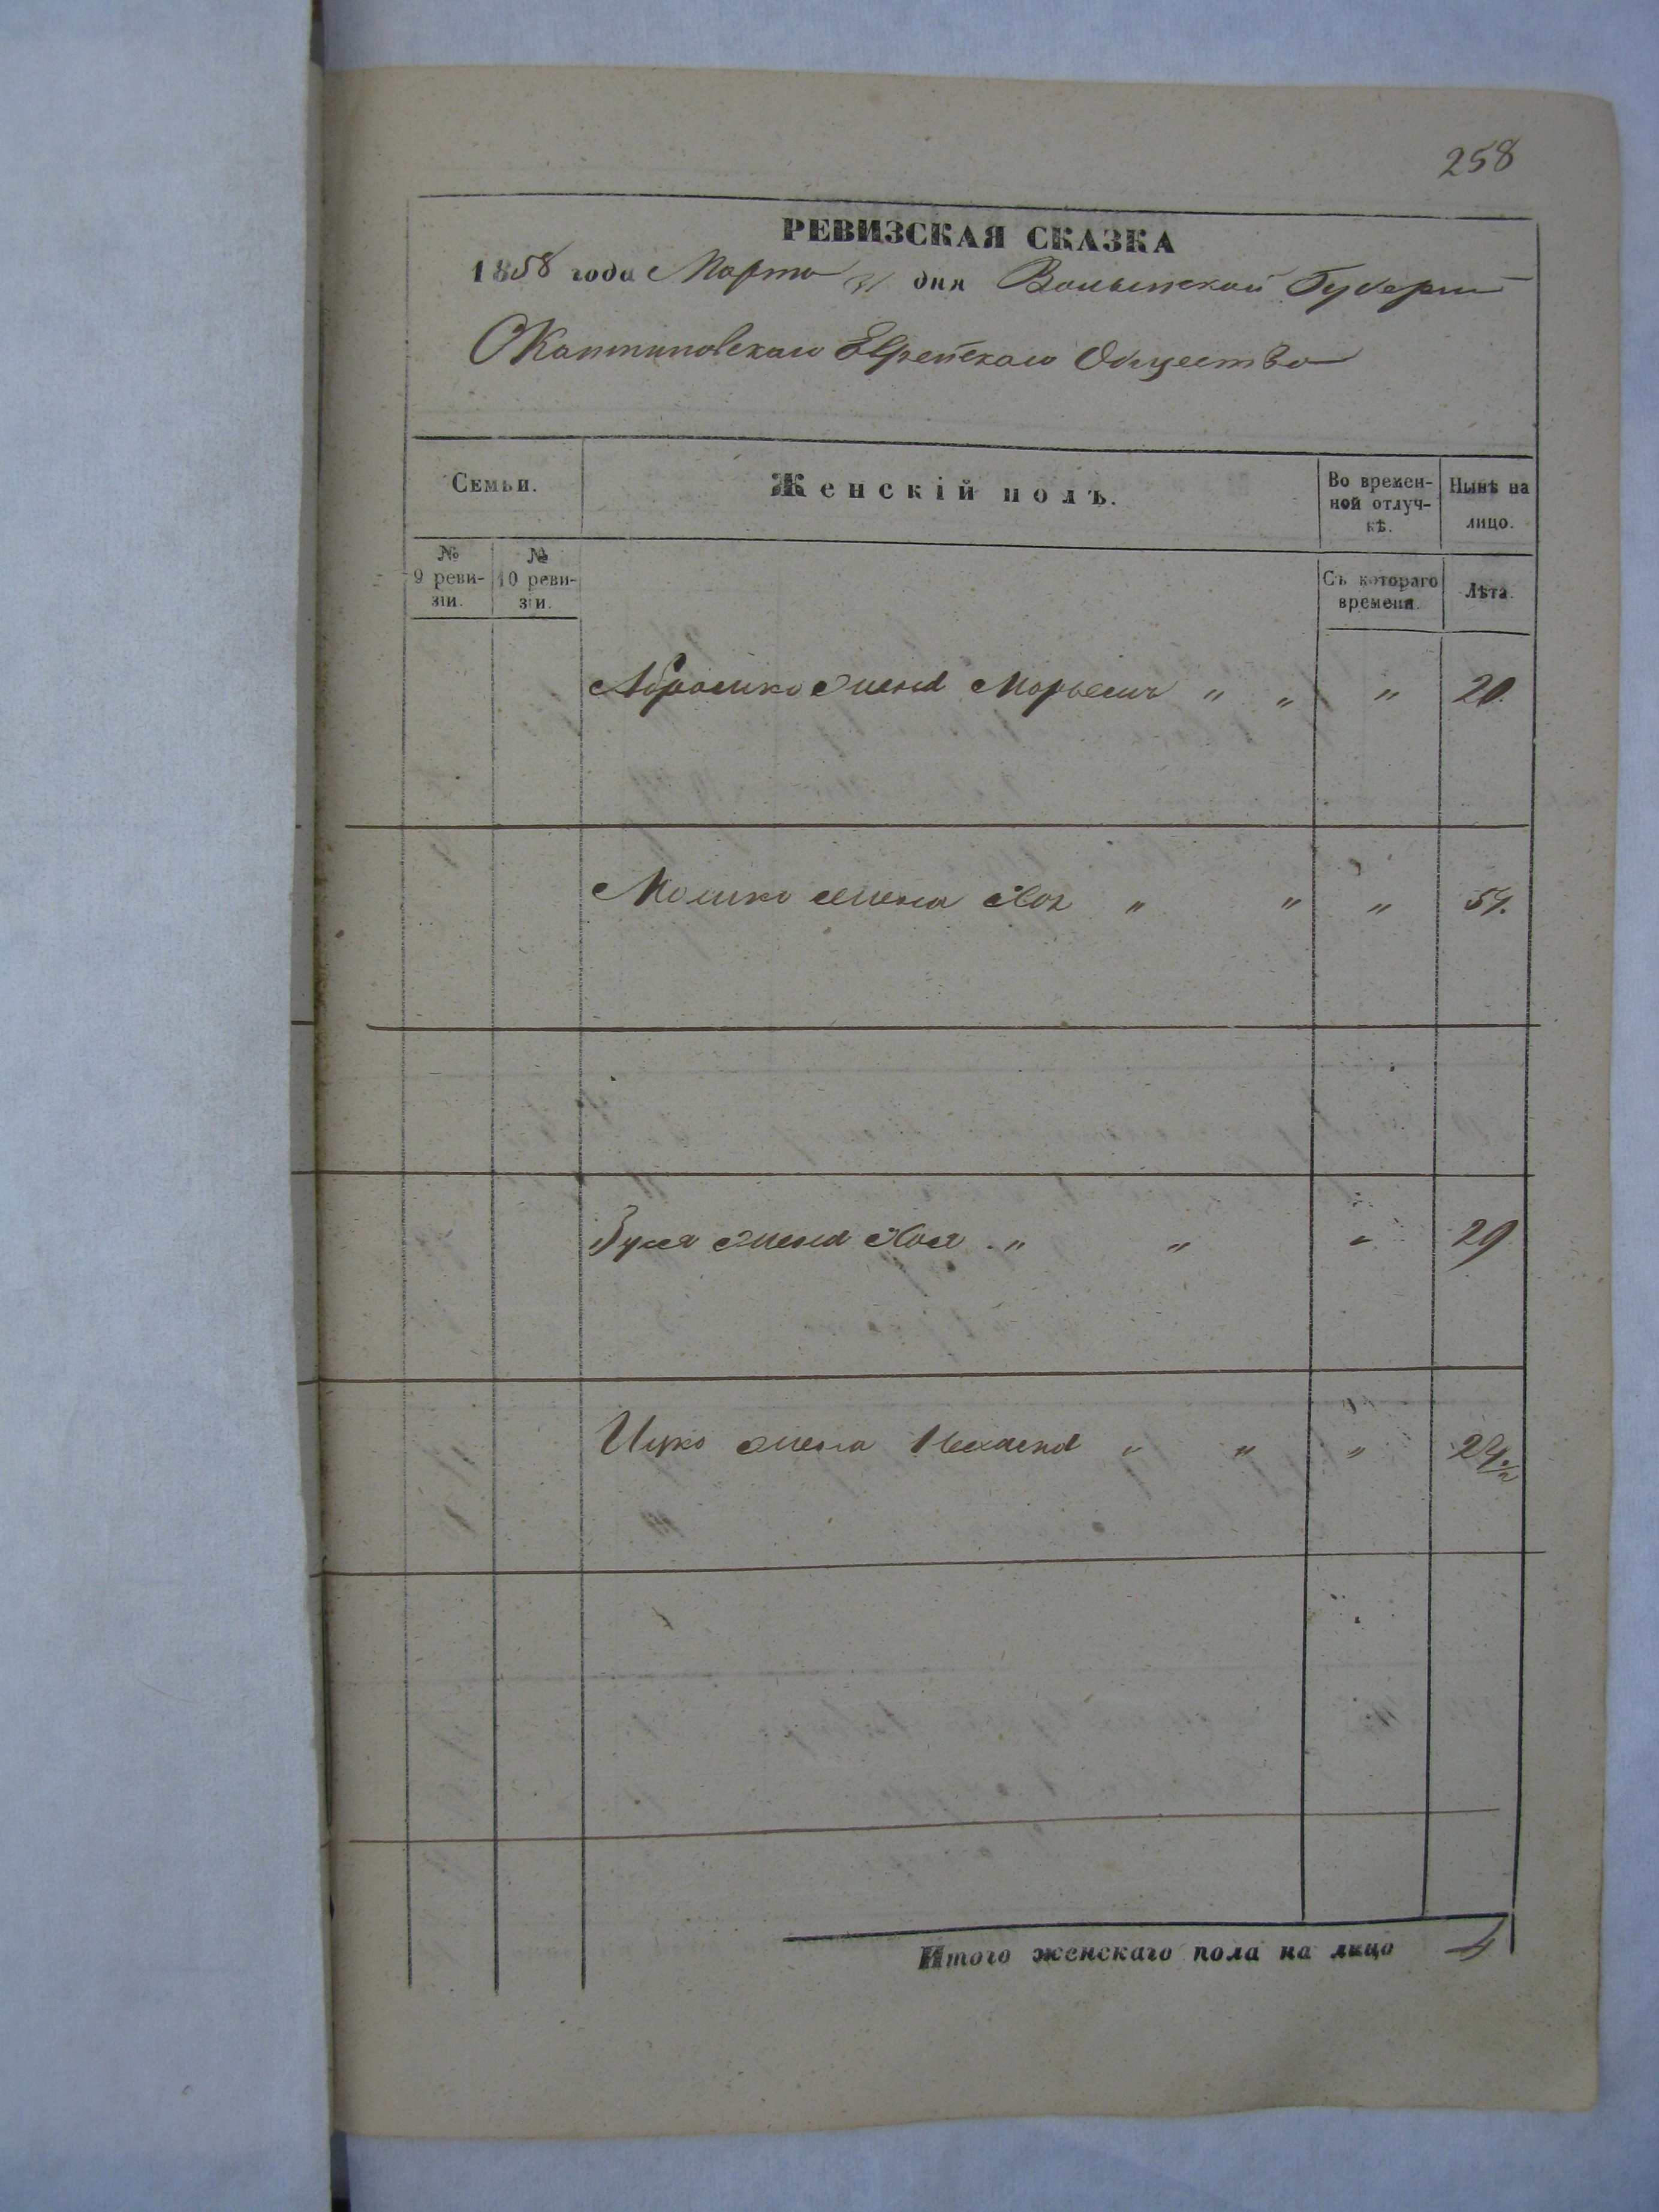 258
РЕВИЗСКАЯ СКАЗКА
1858 года Марта 31 дня Волынской Губернии
Еврейскаго Общества
Семьи.
Женскій полъ.
Во времен-
ной отлуч-
кѣ.
Нынѣ на
лицо.
№
9 реви-
зіи.
№
10 реви-
зіи.
Съ котораго
времени.
Лѣта.
Абрамка жена Марьемъ " " " 20.
Мошка жена " " "
жена Хая " " " 29
Ицко жена " " "
Итого женскаго пола на лицо 4